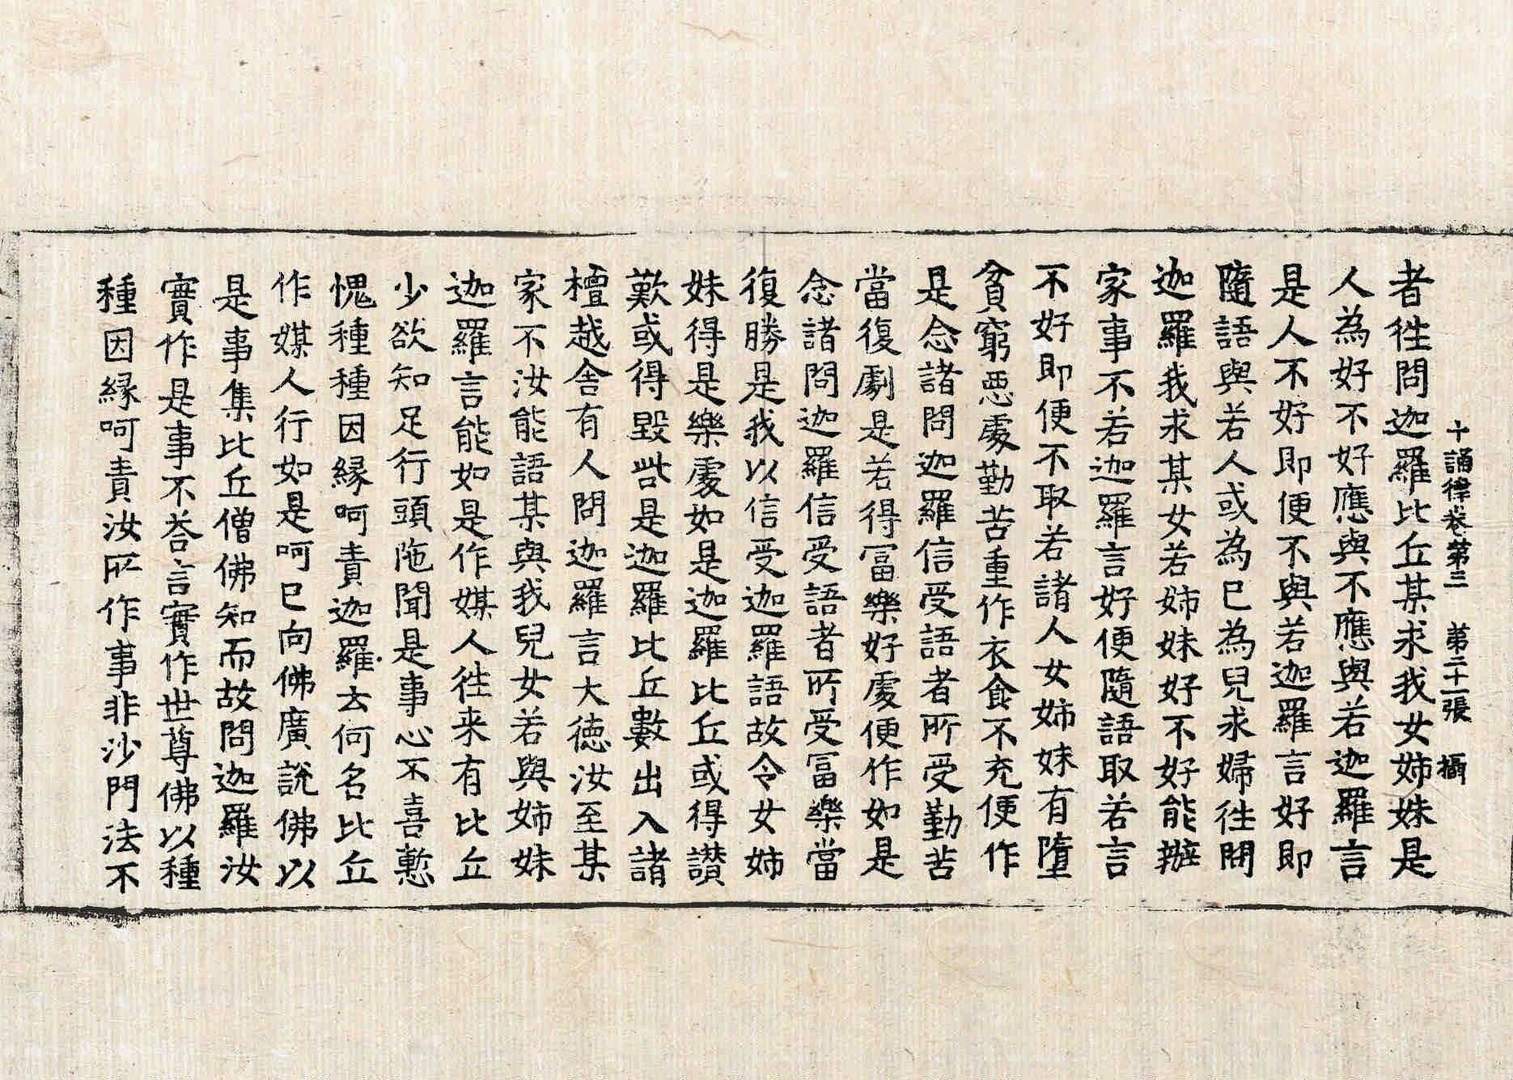 十誦律卷第三　第二十一張　攝
者徃問迦羅比丘某求我女姉妹是
人為好不好應與不應與若迦羅言
是人不好即便不與若迦羅言好即
隨語與若人或為已為兒求婦徃問
迦羅我求某女若姉妹好不好能辦
家事不若迦羅言好便隨語取若言
不好即便不取若諸人女姉妹有墮
貧窮惡處勤苦重作衣食不充便作
是念諸問迦羅信受語者所受勤苦
當復劇是若得冨樂好處便作如是
念諸問迦羅信受語者所受冨樂當
復勝是我以信受迦羅語故令女姉
妹得是樂處如是迦羅比丘或得讃
歎或得毀呰是迦羅比丘數出入諸
檀越舎有人問迦羅言大徳汝至某
家不汝能語某與我兒女若與姉妹
迦羅言能如是作媒人徃来有比丘
少欲知足行頭陁聞是事心不喜慙
愧種種因縁呵責迦羅云何名比丘
作媒人行如是呵已向佛廣說佛以
是事集比丘僧佛知而故問迦羅汝
實作是事不荅言實作世尊佛以種
種因縁呵責汝所作事非沙門法不